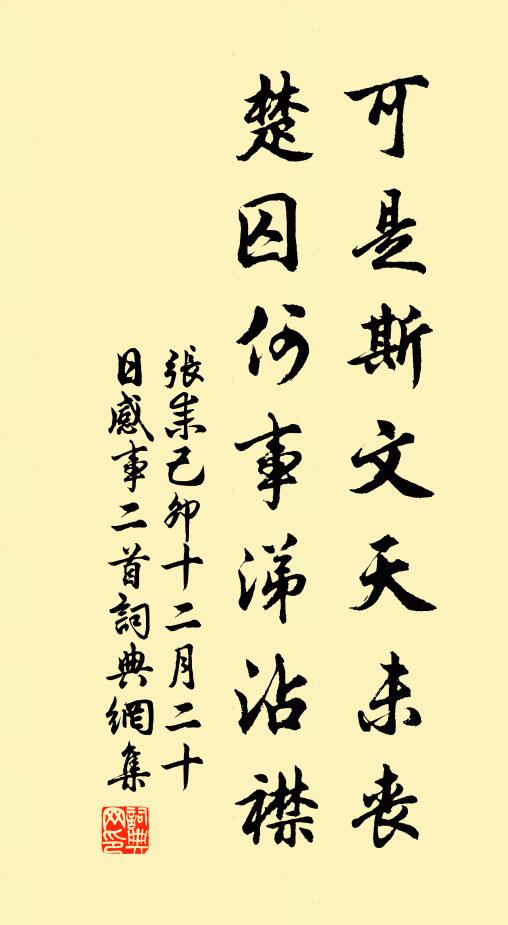 可是斯文天未喪
楚囚何事涕沾襟
張耒己卯十二月二十
日感事二首詞典網集
詞典
网印